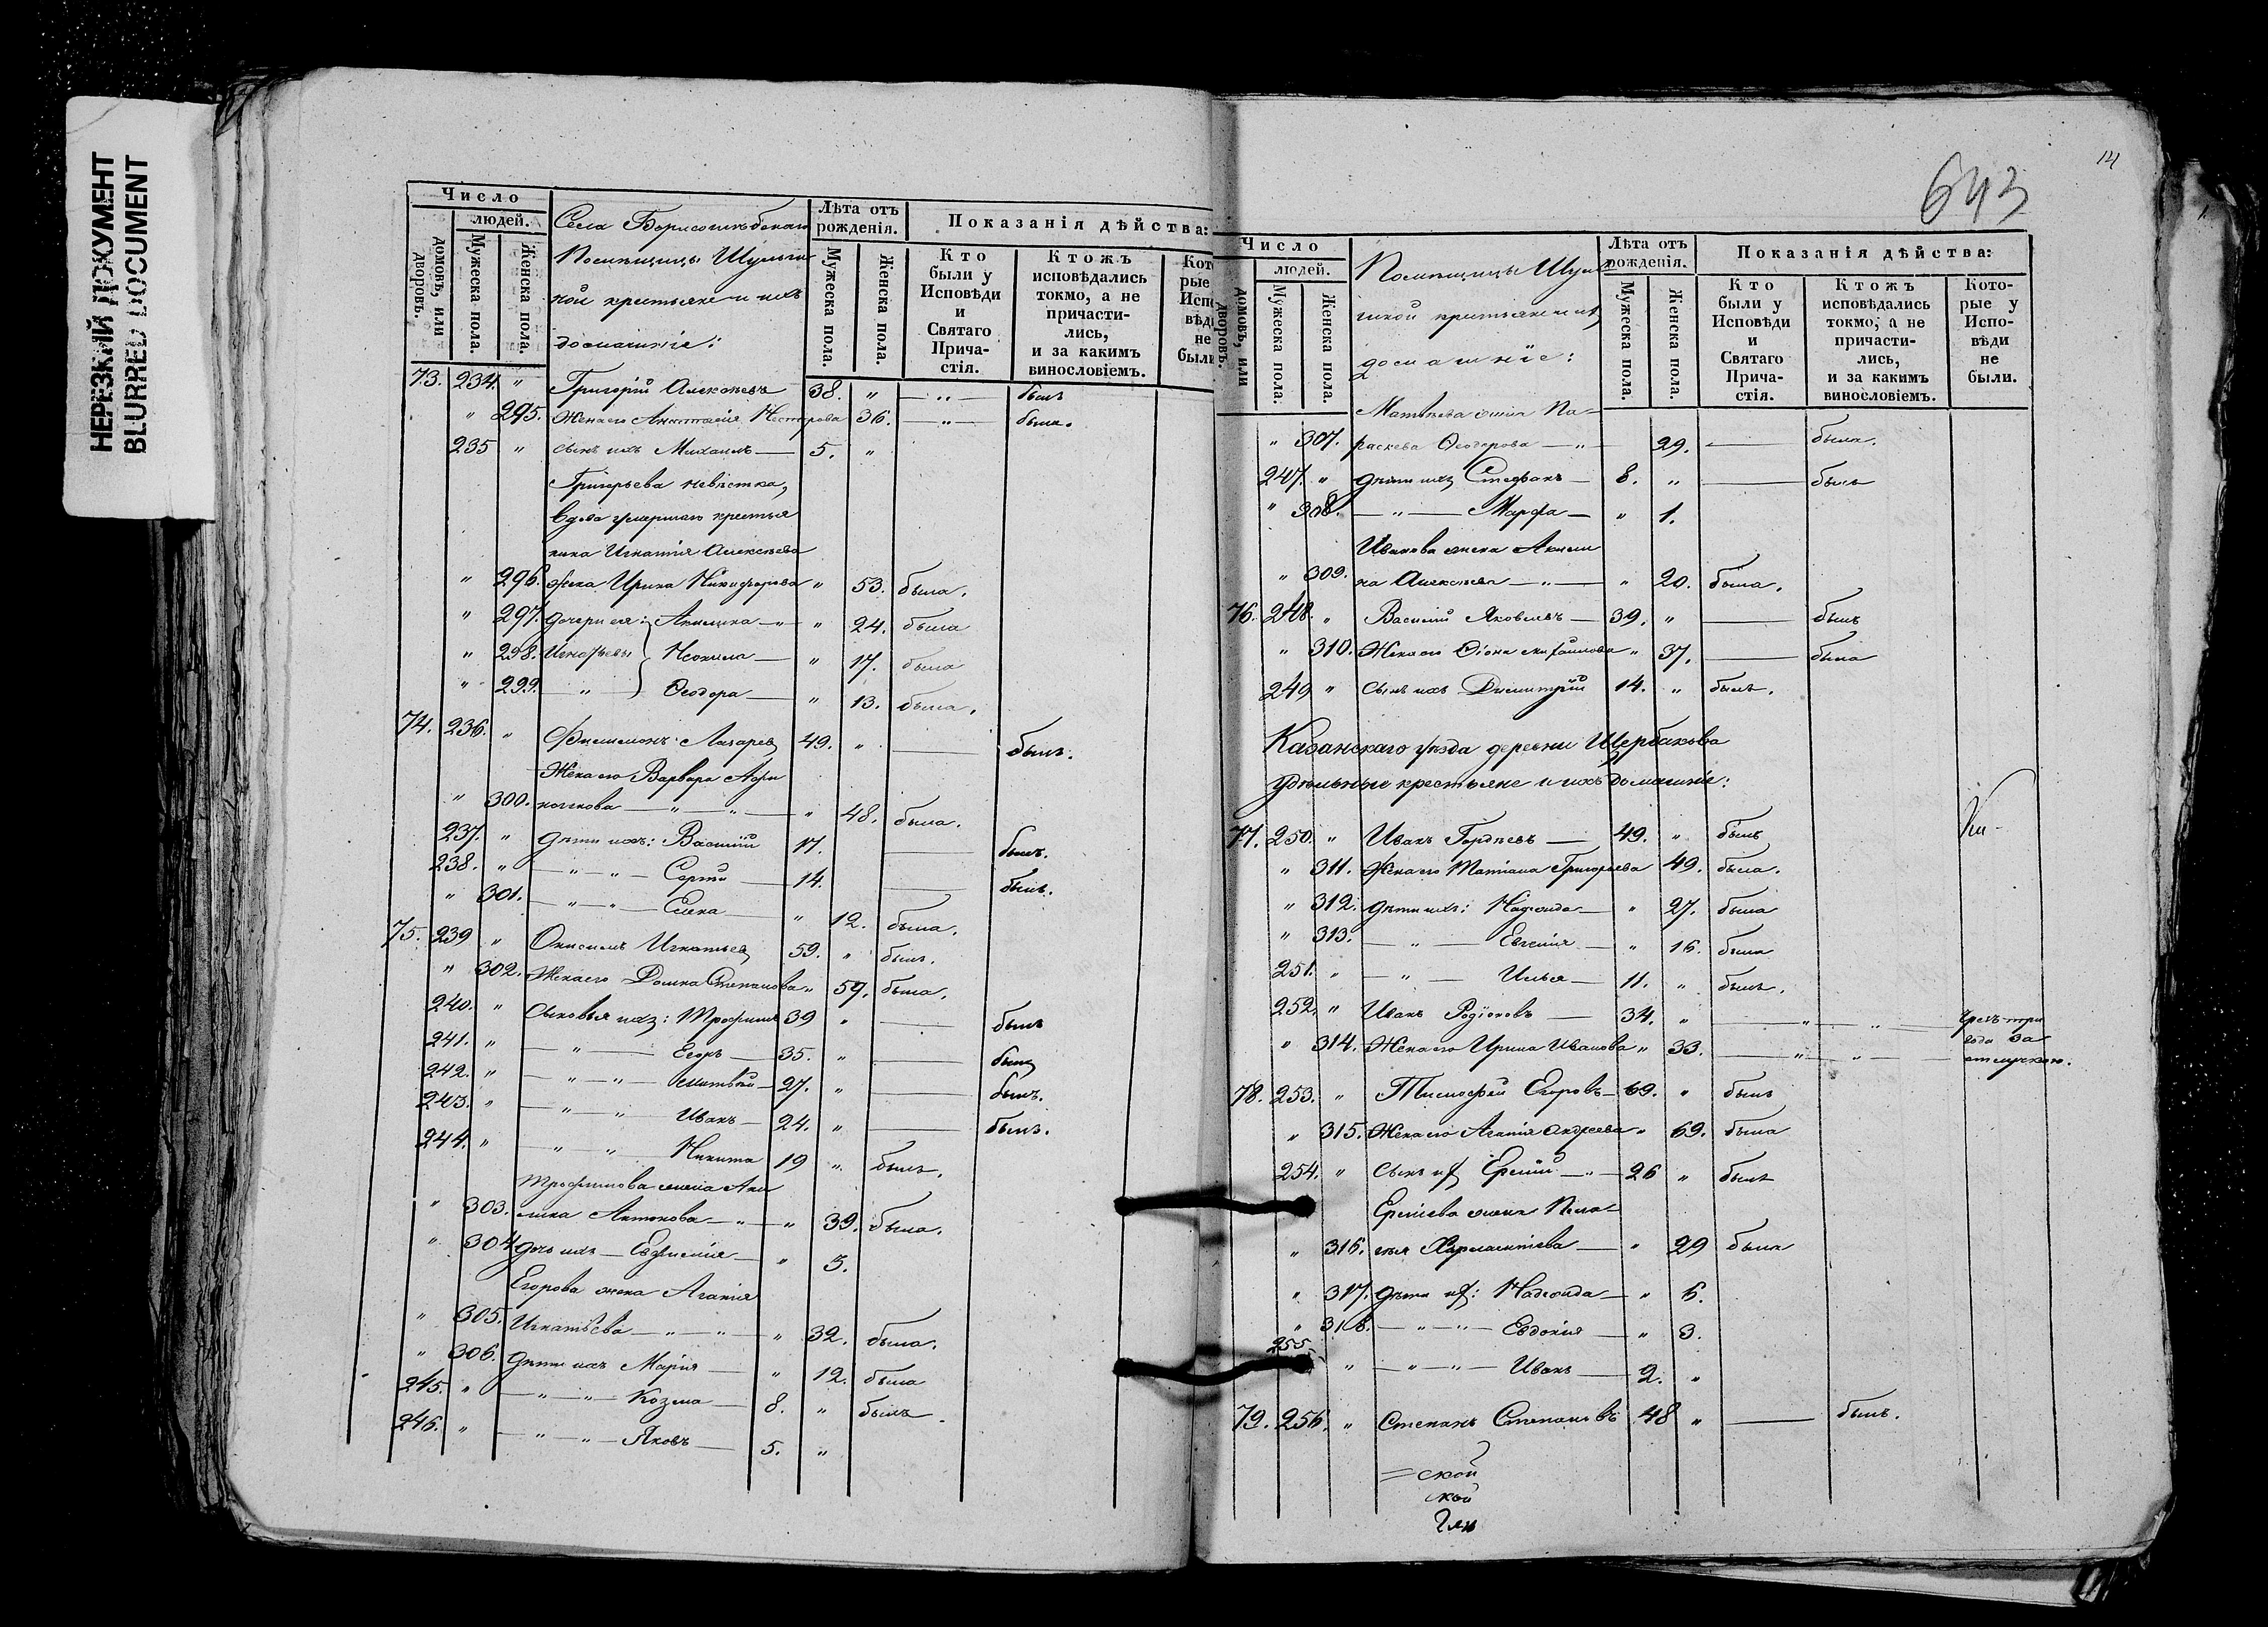 НЕРЕЗКИЙ ДОКУМЕНТ
BLURRED DOCUMENT
Число
людей.
домовъ, или дворовъ.
Мужеска пола.
Женска пола.
Села
Помѣщицы Шульги
ной крестьяне и ихъ
домашніе:
Лѣта отъ рожденія.
Мужеска пола.
Женска пола.
Показанія дѣйства:
Кто были у Исповѣди и Святаго Прича- стія.
Ктожъ исповѣдались токмо, а не причасти- лись, и за какимъ винословіемъ.
73. 234. " Григорій Алексѣевъ 38. " — " — былъ
" 295. Жена его Анастасія Нестерова 36. — " — была.
235 " сынъ ихъ Михаилъ — 5. "
Григорьева невѣстка,
вдова умершаго крестья
нина Игнатія Алексѣева
" 296. жена Ирина Никифорова " 53. была.
" 297. дочери ея: Акилина — " — " 24. была
" 298. Игнатьевы Неонила — " 17. была
" 299. — " — Ѳеодора — " 13. была.
74. 236. " Филимонъ Лазаревъ 49. " — былъ.
Жена его Варвара Афи
" 300. ногенова — " — " — " 48. была.
237. " дѣти ихъ: Василій 17. — былъ.
238. " — " — " — Сергій — 14. — былъ.
" 301. — " — " — Елена — " 12. была.
75. 239 " Онисимъ Игнатьевъ 59. " былъ.
" 302. Жена его Домна Степанова " 59. была.
240. " Сыновья ихъ: Трофимъ 39 " — былъ
241. " — " — Егоръ — 35. " — былъ
242. " — " — " — Матвѣй — 27. " — былъ.
243. " — " — " Иванъ — 24. " — былъ.
244. " — " — " Никита 19 " былъ.
Трофимова жена Аки
" 303. лина Антонова — " — " 39. была.
" 304 дочь ихъ — Евфимія — " 3.
Егорова жена Агафія
" 305. Игнатьева — " — " — " 32. была.
" 306. дѣти ихъ Марія — " 12. была
245. " — " — " — Козма — 8. " былъ.
246. " — " — " — Яковъ — 5. "
643
Число
людей.
домовъ, или дворовъ.
Мужеска пола.
Женска пола.
Помѣщицы Шуль
гиной крестьяне и ихъ
домашніе:
Лѣта отъ рожденія.
Мужеска пола.
Женска пола.
Показанія дѣйства:
Кто были у Исповѣди и Святаго Прича- стія.
Ктожъ исповѣдались токмо, а не причасти- лись, и за какимъ винословіемъ.
Кото- рые у Испо- вѣди не были.
Матвѣева жена Па-
" 307. раскева Ѳеодорова — " — 29. — была.
247. " дѣти ихъ Стефанъ — 8. " — былъ
" 308. — " — Марфа — " 1.
Иванова жена Акили
" 309. на Алексѣева — " — " 20. была.
76. 248. " Василій Яковлевъ — 39. " — былъ
" 310. Жена его " 37. — была
249 " Сынъ ихъ Димитрій 14. " былъ.
Казанскаго уѣзда деревни Щербакова
удѣльные крестьяне и ихъ домашніе:
77. 250. " Иванъ Гордѣевъ — 49. " былъ
" 311. Жена его Татіана Григорьева 49. была.
" 312. дѣти ихъ: Надежда — " 27. была
" 313. — " — Евгенія — " 16. была
251. " — " — Илья — 11. " былъ.
252. " Иванъ Родіоновъ — 34. " — " — " — Чрезъ три
" 314. Жена его Ирина Иванова " 33. — " — " — года за
отлучкою.
78. 253. " Тимофей Егоровъ — 69. " былъ
" 315. Жена его Агафія Андреева " 69. была
254. " Сынъ ихъ Ермій — " — 26 " былъ
Ерміева жена Пела-
" 316. гея Харлампіева — " 29 была
" 317. дѣти ихъ: Надежда — " 6.
" 318. — " — " — Евдокія — " 3.
255. " — " — " — Иванъ — 2. "
79. 256. " Степанъ Степановъ 48 " — былъ.